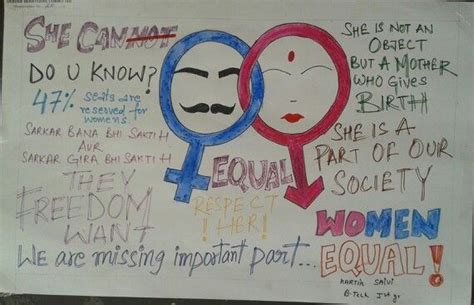 SHE CANNOT
DO U KNOW?
47% seats are
reserved for
womens
SARKAR BANA BHI SAKTI H
AUR
SARKAR GIRA BHI SAKTI H
THEY
FREEDOM
WANT
We are missing important part...
EQUAL
RESPECT
! HER !
SHE IS NOT AN
OBJECT
BUT A MOTHER
WHO GIVES
BIRTH
SHE IS A
PART OF OUR
SOCIETY
WOMEN
EQUAL!
KARTIK
B-TECH